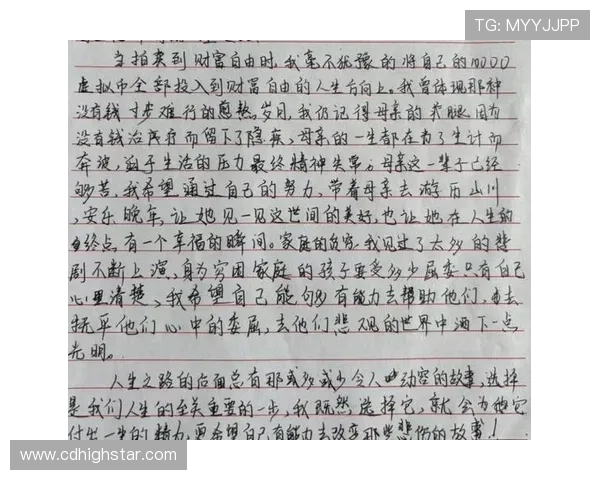 TG: MYYJJPP
当拍卖到财富自由时,我毫不犹豫的将自己的10000
虚拟币全部投入到财富自由的人生方向上。我曾体现那种
没有钱寸步难行的岁月,我仍记得母亲的 腿因为
没有钱治疗而留下了隐疾,母亲的一生都在为了生计而
奔波,迫于生活的压力最终精神失常。母亲这一辈子已经
够苦,我希望通过自己的努力,带着母亲去游历山川
,安乐晚年,让她见一见这世间的美好,也让她在人生的
终点有一个幸福的瞬间。家庭的贫穷,我见过了太多的悲
剧不断上演,身为穷困家庭的孩子要受多少屈委只有自己
心里清楚,我希望自己能够有能力去帮助他们,去
抚平他们心中的委屈,去他们悲观的世界中洒下一点
光明。
人生之路的后面总有那或多或少令人动容的故事,选择
是我们人生的至关重要的一步,我既然选择它,就会为他
付出一生的精力,更希望自己有能力去改变那些悲伤的故事!
www.cdhighstar.com